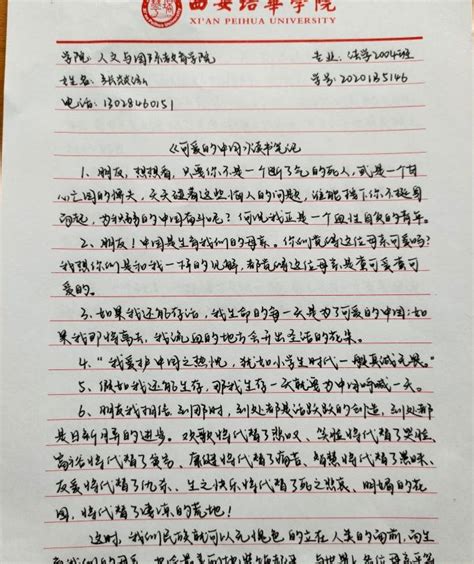 西安培华学院
XI'AN PEIHUA UNIVERSITY
学院：人文与国际教育学院 专业：法学2004班
姓名： 学号：2020135146
电话：13028460151
《可爱的中国》读书笔记
1、朋友，想想看，只要你不是一个断了气的死人，或是一个甘
心亡国的懦夫，天天碰着这些恼人的问题，谁能按下你不挺身
而起，为积弱的中国奋斗呢？何况我正是一个血性自负的青年。
2、朋友！中国是生育我们的母亲。你们觉得这位母亲可爱吗？
我想你们是和我一样的见解，都觉得这位母亲是蛮可爱蛮可
爱的。
3、如果我还能存活，我生命的每一天是为了可爱的中国；如
果我那将离去，我流血的地方会开出圣洁的花朵。
4、“我爱护中国之热忱，犹如小学生时代一般真诚无畏。”
5、假如我还能生存，那我生存一天就要为中国呼喊一天。
6、朋友我相信，到那时，到处都是活跃跃的创造，到处都
是日新月异的进步。欢歌将代替了悲叹、笑脸将代替了哭脸、
富裕将代替了贫穷、康健将代替了疾苦、智慧将代替了愚昧、
友爱将代替了仇杀、生之快乐将代替了死之悲哀、明媚的花
园，将代替了凄凉的荒地！
这时，我们民族就可以无愧色的立在人类的面前，而生